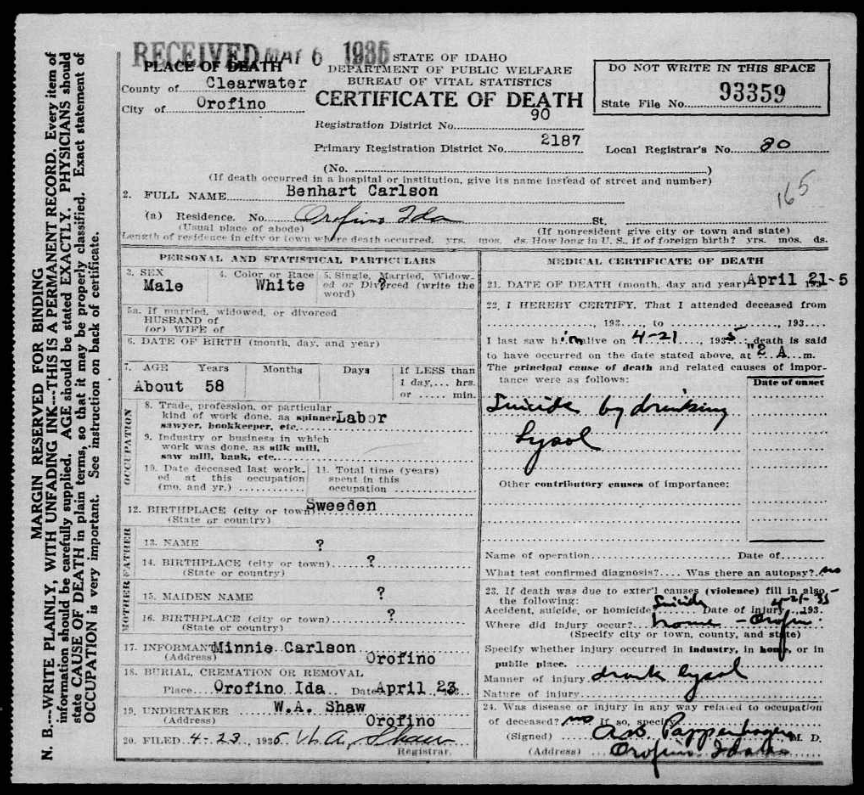 RECEIVED MAY 6 1935
STATE OF IDAHO
DEPARTMENT OF PUBLIC WELFARE
BUREAU OF VITAL STATISTICS
CERTIFICATE OF DEATH
PLACE OF DEATH
County of Clearwater
City of Orofino
DO NOT WRITE IN THIS SPACE
State File No. 93359
Registration District No. 90
Primary Registration District No. 2187
Local Registrar's No.
(No. )
(If death occurred in a hospital or institution, give its name instead of street and number)
2. FULL NAME Benhart Carlson
165
(a) Residence. No. Orofino Ida St.
(Usual place of abode) (If nonresident give city or town and state)
Length of residence in city or town where death occurred. yrs. mos. ds. How long in U. S., if of foreign birth? yrs. mos. ds.
PERSONAL AND STATISTICAL PARTICULARS
3. SEX Male
4. Color or Race White
5. Single, Married, Widowed or Divorced (write the word) ?
5a. If married, widowed, or divorced
HUSBAND of
(or) WIFE of
6. DATE OF BIRTH (month, day, and year)
7. AGE Years Months Days If LESS than
1 day,... hrs.
or ...... min.
About 58
OCCUPATION
8. Trade, profession, or particular
kind of work done, as spinner, Labor
sawyer, bookkeeper, etc.
9. Industry or business in which
work was done, as silk mill,
saw mill, bank, etc.
10. Date deceased last work-
ed at this occupation
(mo. and yr.)
11. Total time (years)
spent in this
occupation
12. BIRTHPLACE (city or town) Sweeden
(State or country)
FATHER
13. NAME ?
14. BIRTHPLACE (city or town) ?
(State or country)
MOTHER
15. MAIDEN NAME ?
16. BIRTHPLACE (city or town) ?
(State or country)
17. INFORMANT Minnie Carlson
(Address) Orofino
18. BURIAL, CREMATION OR REMOVAL
Place Orofino Ida Date April 23
19. UNDERTAKER W.A. Shaw
(Address) Orofino
20. FILED 4-23, 1935 W.A. Shaw
Registrar.
MEDICAL CERTIFICATE OF DEATH
21. DATE OF DEATH (month, day and year) April 21-5
22. I HEREBY CERTIFY, That I attended deceased from
, 193 to , 193
I last saw him alive on 4-21, 1935; death is said
to have occurred on the date stated above, at 2 A. m.
The principal cause of death and related causes of impor-
tance were as follows:
Date of onset
Suicide by drinking
Lysol
Other contributory causes of importance:
Name of operation Date of
What test confirmed diagnosis? Was there an autopsy? no
23. If death was due to exter'l causes (violence) fill in also
the following:
Accident, suicide, or homicide Suicide Date of injury 4-21-35 193
Where did injury occur? home - Orofino
(Specify city or town, county, and state)
Specify whether injury occurred in industry, in home, or in
public place.
Manner of injury drank lysol
Nature of injury
24. Was disease or injury in any way related to occupation
of deceased? no If so, specify
(Signed) M. D.
(Address) Orofino Idaho
MARGIN RESERVED FOR BINDING
N. B.---WRITE PLAINLY, WITH UNFADING INK---THIS IS A PERMANENT RECORD. Every item of
information should be carefully supplied. AGE should be stated EXACTLY. PHYSICIANS should
state CAUSE OF DEATH in plain terms, so that it may be properly classified. Exact statement of
OCCUPATION is very important. See instruction on back of certificate.